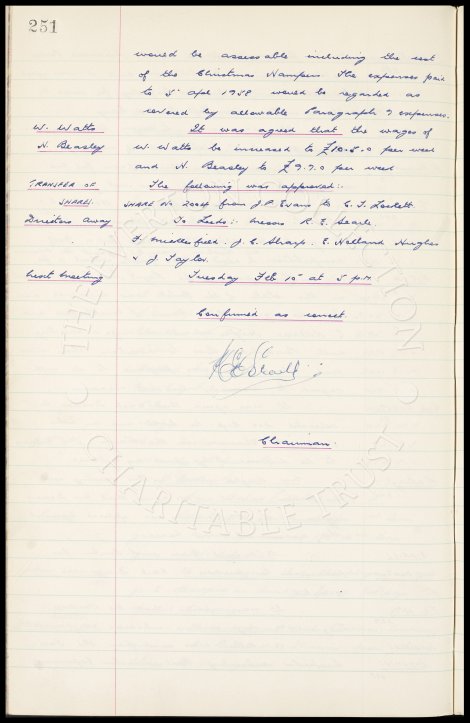 251
would be assessable including the cost
of the Christmas Hampers. The expenses paid
to 5th Apl 1958 would be regarded as
covered by allowable Paragraph 7 expenses.
W. Watts
N Beasley
It was agreed that the wages of
W. Watts be increased to £10.5.0 per week
and N Beasley to £9.7.0 per week
TRANSFER OF SHARES.
The following was approved:-
SHARE No 2004 from J.P. Evans to C. F. Lockett.
Directors Away
To Leeds:- Messrs R. E. Searle.
F. Micklesfield. J. C. Sharp. E. Holland Hughes
& J Taylor.
Next Meeting
Tuesday Feb 10th at 5 p.m.
Confirmed as correct.
Chairman.
CHARITABLE TRUST